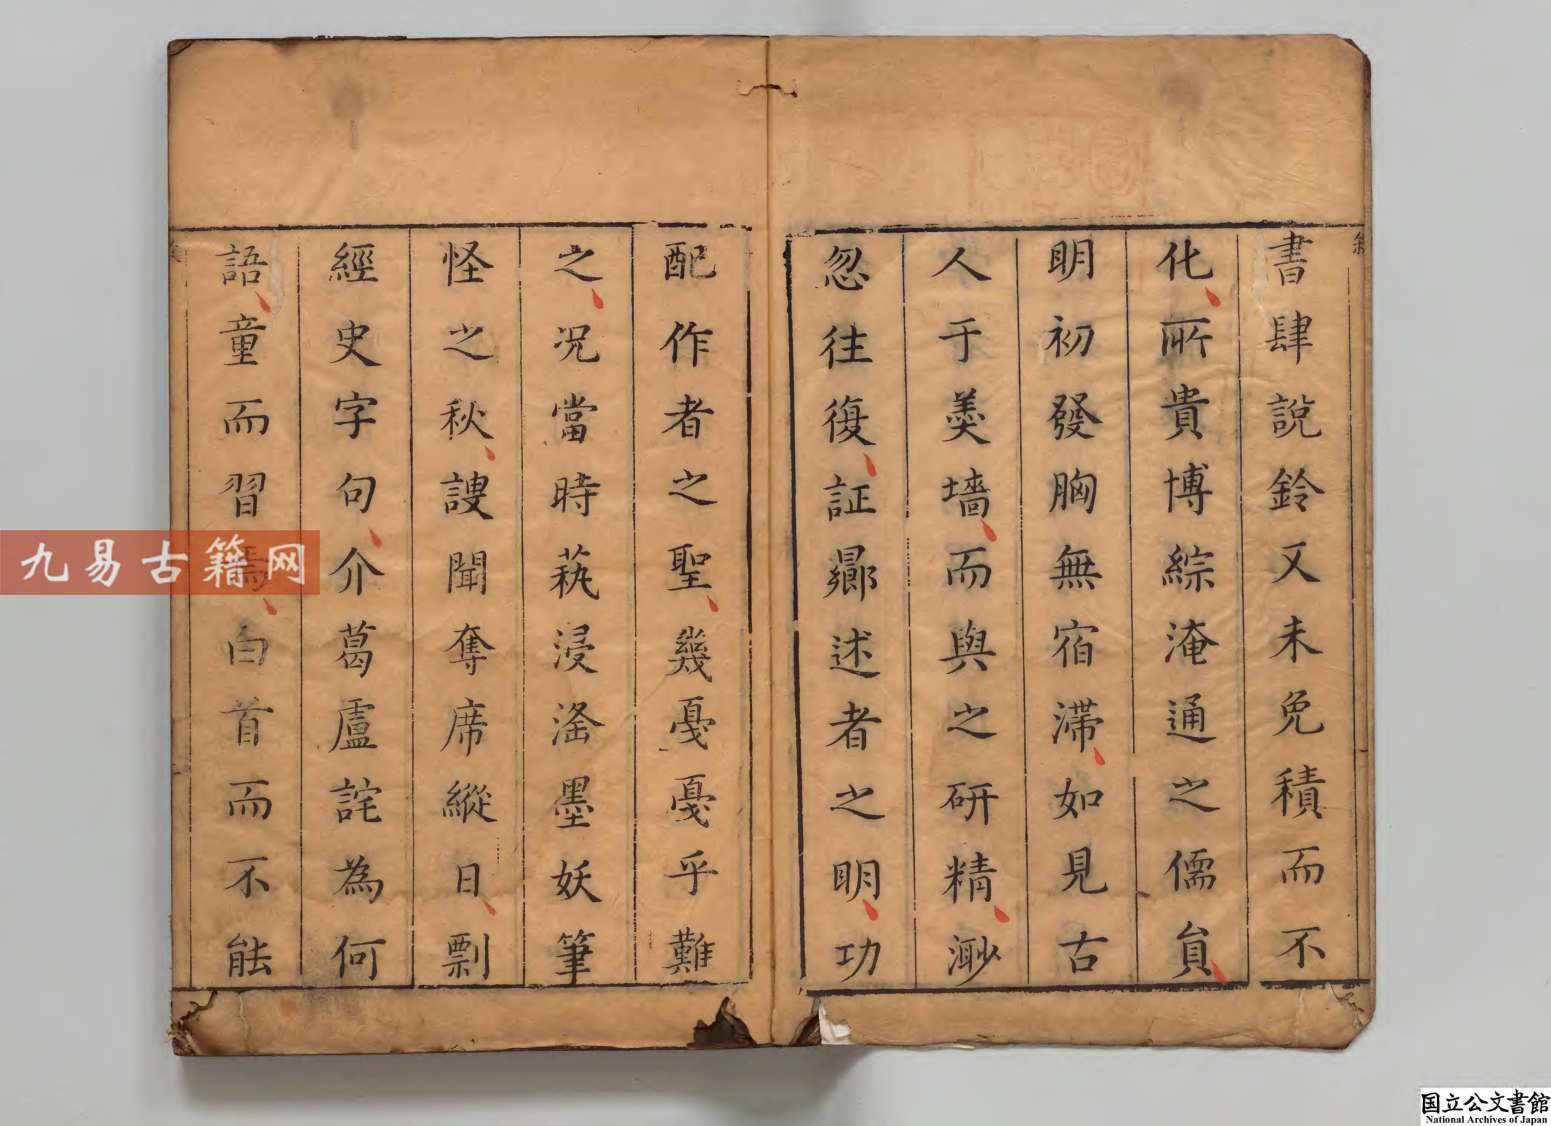 書肆說鈴又未免積而不
化所貴博綜淹通之儒貟
明初發胸無宿滯如見古
人于羮墻而與之研精渺
忽往復証嚮述者之明功
配作者之聖幾戞戞乎難
之况當時蓺浸滛墨妖筆
怪之秋謏聞奪席縱日剽
經史字句介葛盧詫為何
語童而習焉白首而不能
九易古籍网
国立公文書館
National Archives of Japan